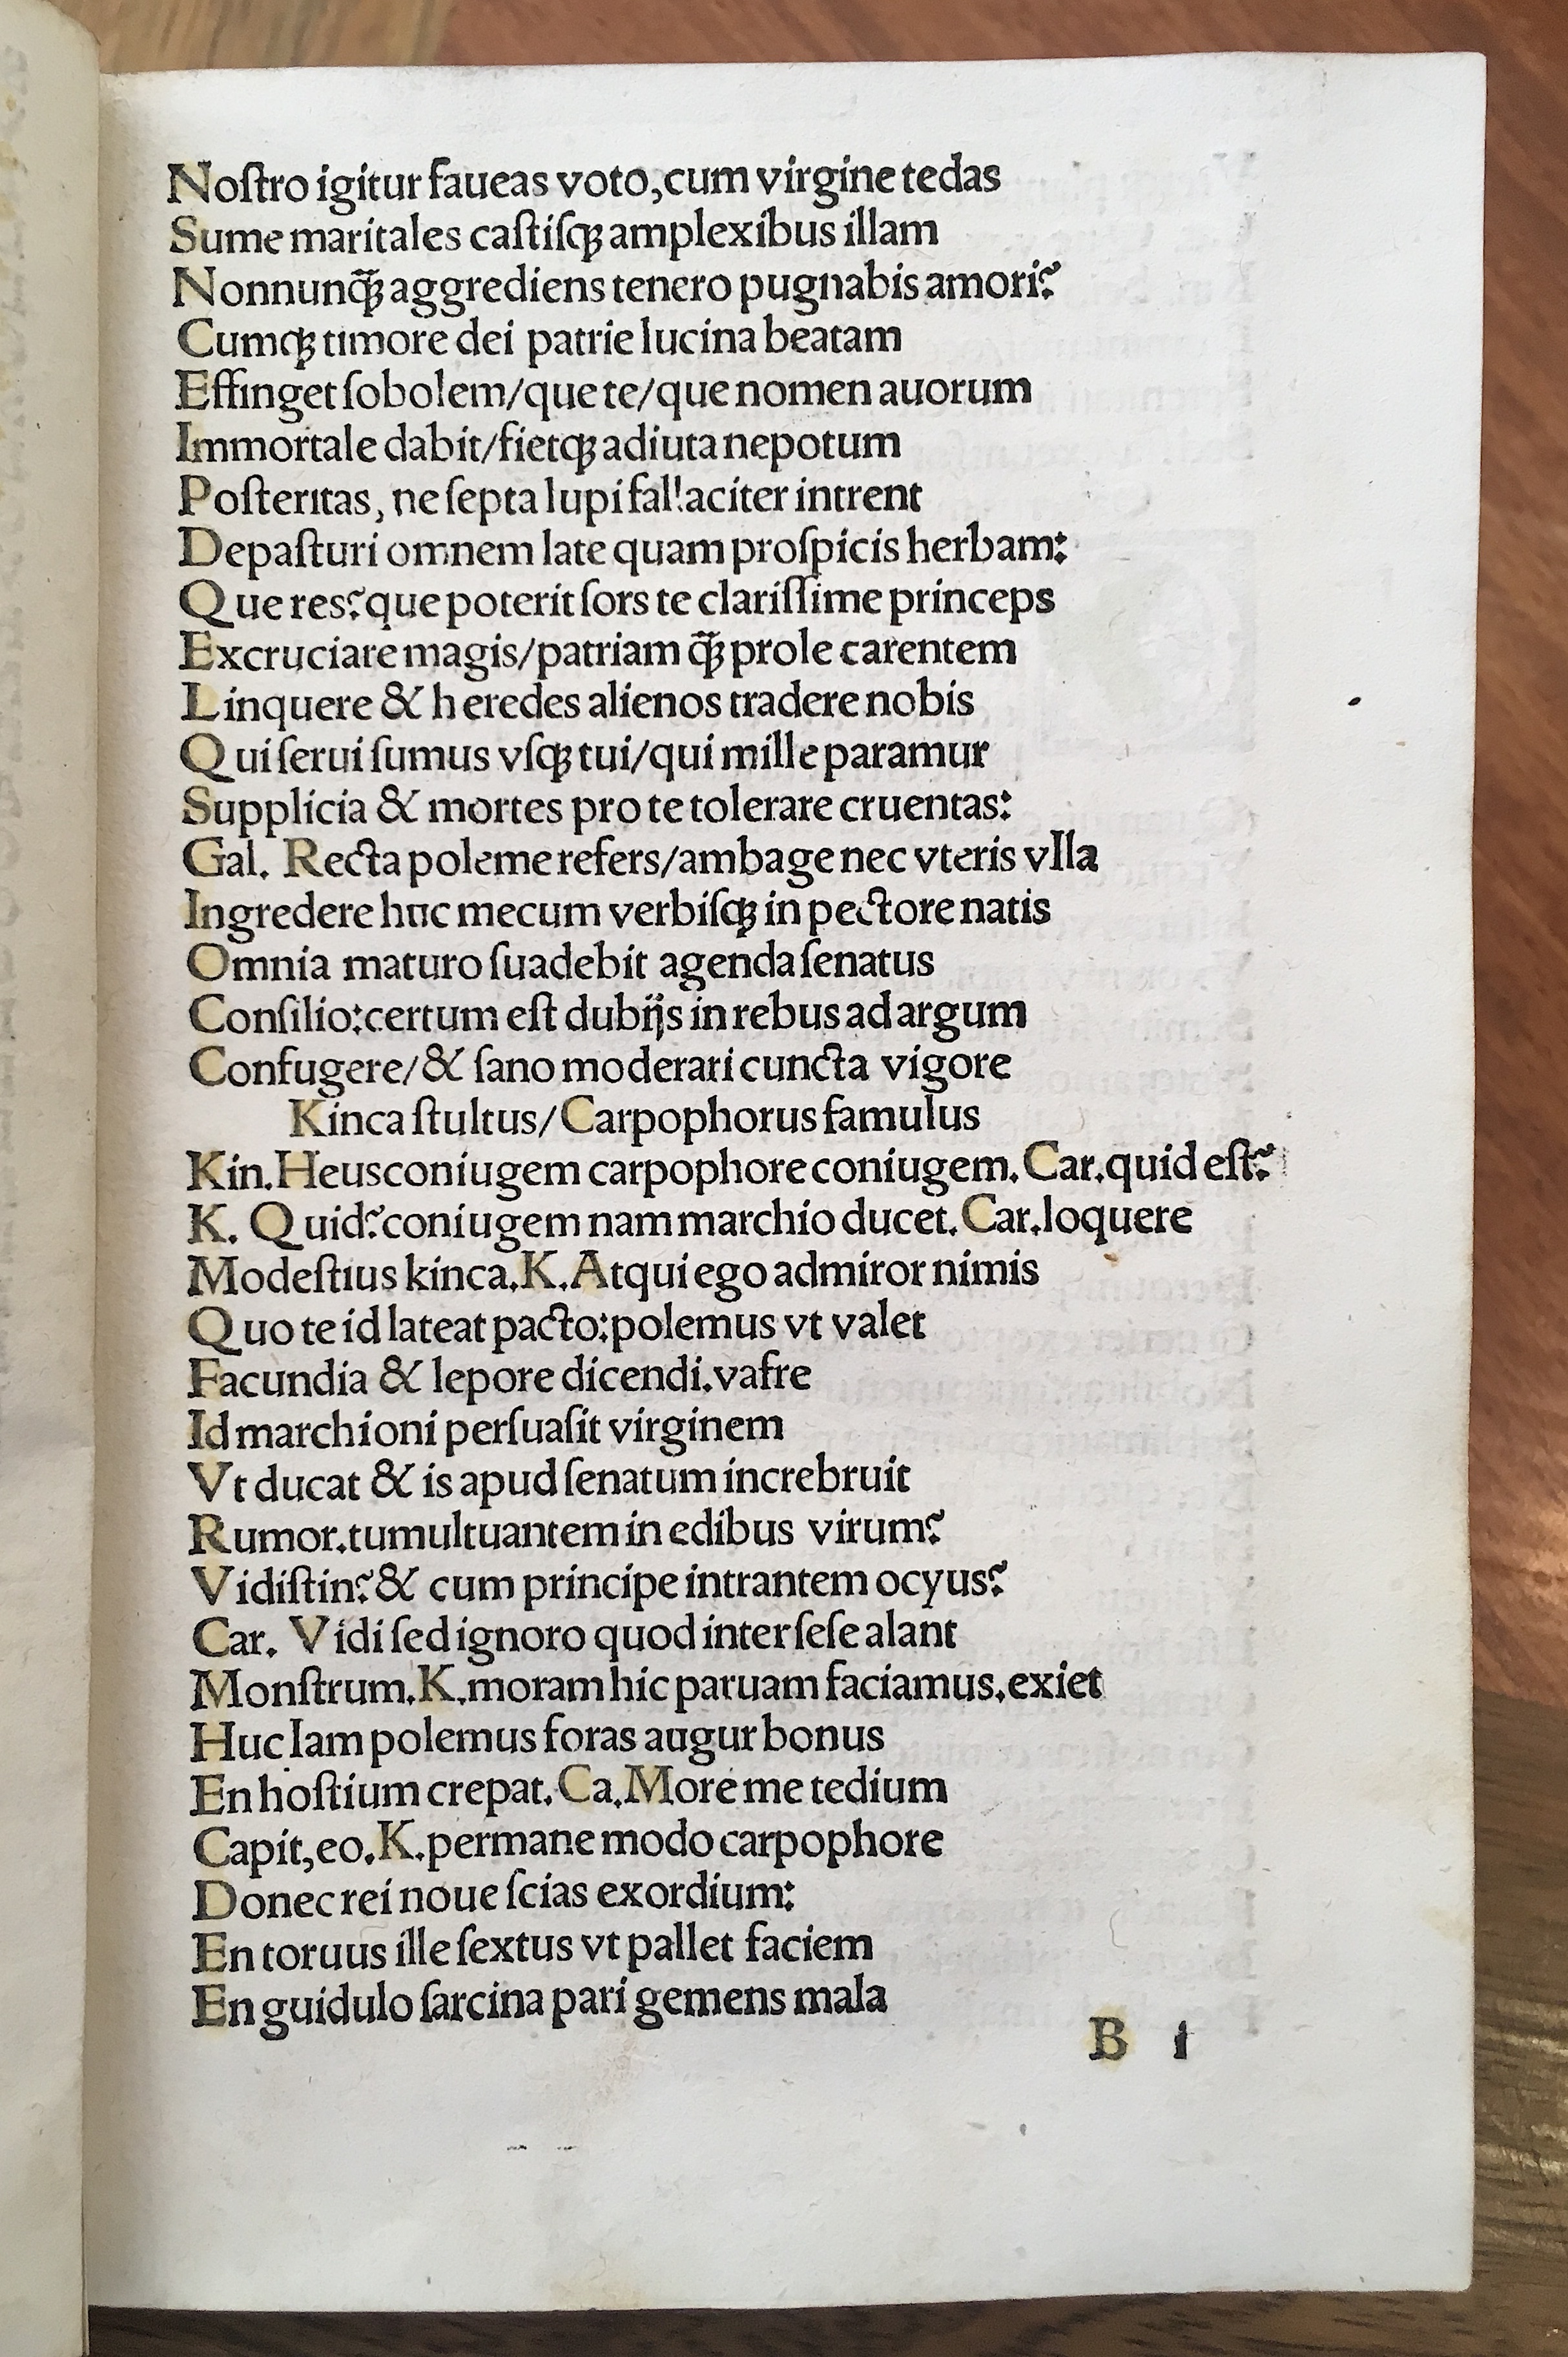 Noſtro igitur faueas voto,cum virgine tedas
Sume maritales caſtiſqꝫ amplexibus illam
Nonnunq̃ꝫ aggrediens tenero pugnabis amori?
Cumqꝫ timore dei patrie lucina beatam
Effinget ſobolem/que te/que nomen auorum
Immortale dabit/fietqꝫ adiuta nepotum
Poſteritas, ne ſepta lupi fallaciter intrent
Depaſturi omnem late quam proſpicis herbam:
Que res?que poterit ſors te clariſſime princeps
Excruciare magis/patriam q̃ꝫ prole carentem
Linquere & heredes alienos tradere nobis
Qui ſerui ſumus vſqꝫ tui/qui mille paramur
Supplicia & mortes pro te tolerare cruentas:
Gal. Recta poleme refers/ambage nec vteris vlla
Ingredere huc mecum verbiſqꝫ in pectore natis
Omnia maturo ſuadebit agenda ſenatus
Conſilio:certum eſt dubijs in rebus ad argum
Confugere/& ſano moderari cuncta vigore
Kinca ſtultus/Carpophorus famulus
Kin.Heus coniugem carpophore coniugem.Car.quid eſt?
K. Quid?coniugem nam marchio ducet.Car.loquere
Modeſtius kinca.K.Atqui ego admiror nimis
Quo te id lateat pacto:polemus vt valet
Facundia & lepore dicendi.vafre
Id marchioni perſuaſit virginem
Vt ducat & is apud ſenatum increbruit
Rumor.tumultuantem in edibus virum?
Vidiſtin?& cum principe intrantem ocyus?
Car. Vidi ſed ignoro quod inter ſeſe alant
Monſtrum.K.moram hic paruam faciamus.exiet
Huc Iam polemus foras augur bonus
En hoſtium crepat.Ca.More me tedium
Capit,eo.K.permane modo carpophore
Donec rei noue ſcias exordium:
En toruus ille ſextus vt pallet faciem
En guidulo ſarcina pari gemens mala
B i